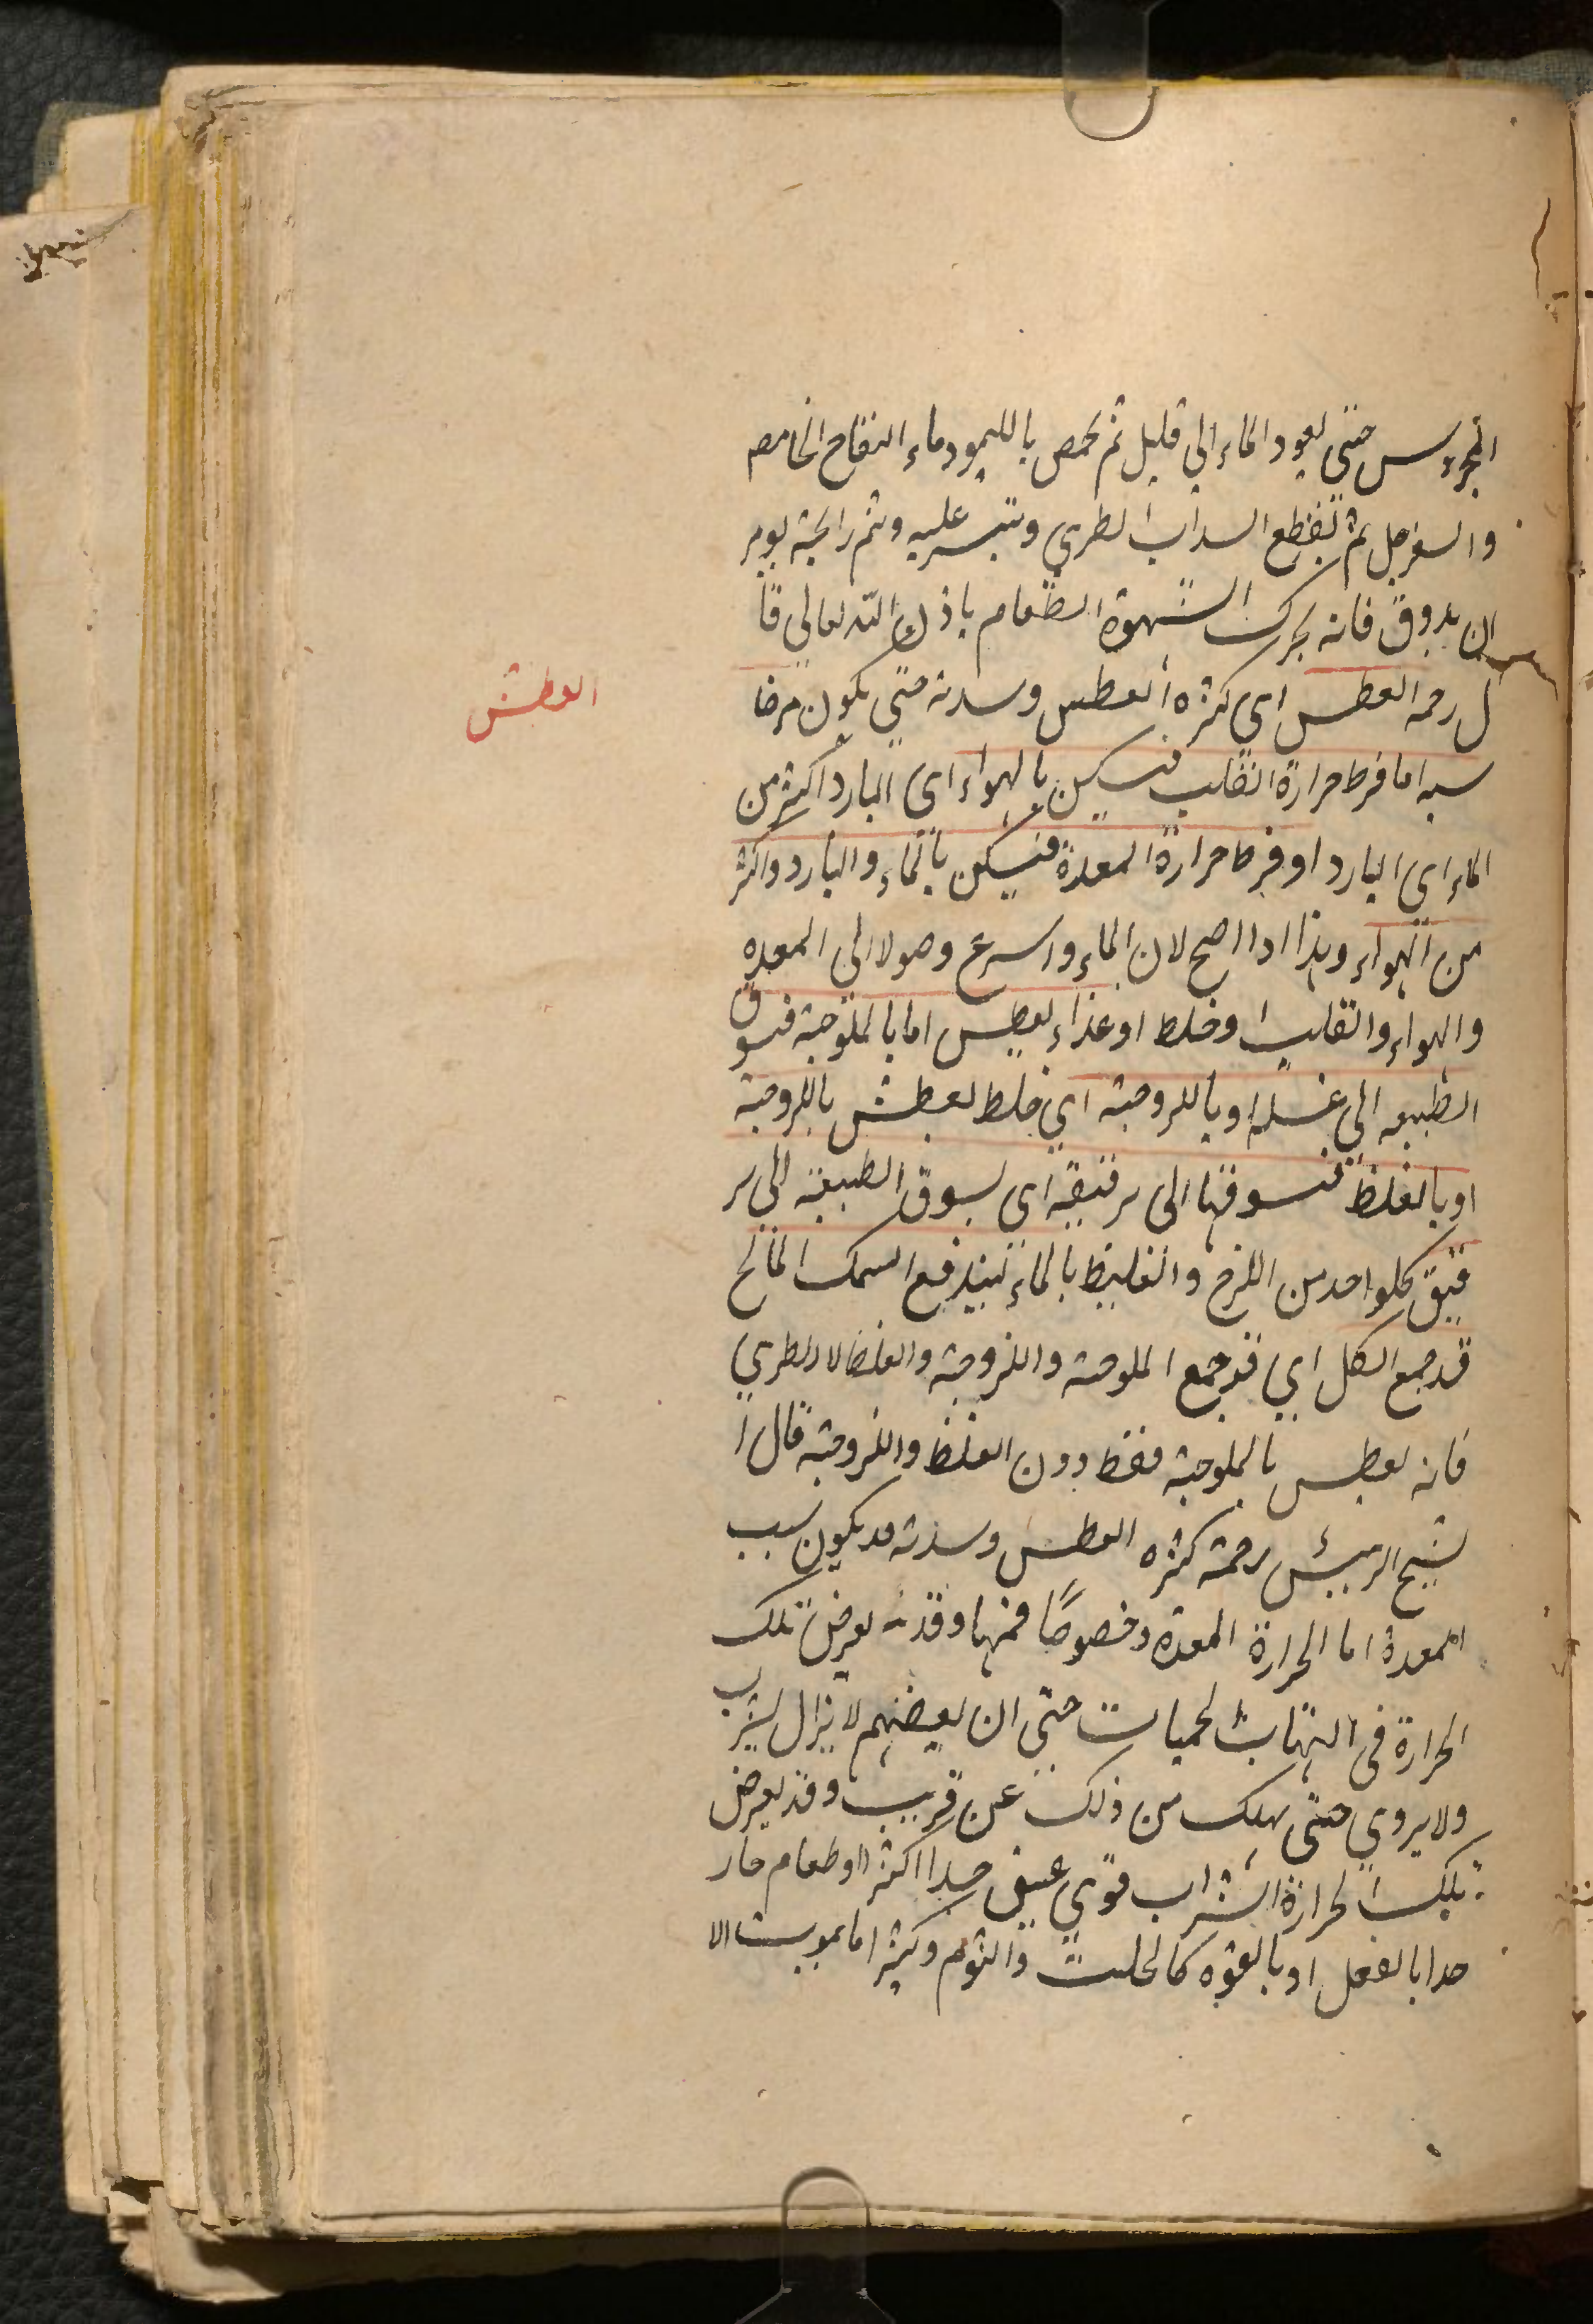 حتى يعود الماء الى قليل ثم يحمص بالليمو وماء التفاح الحامص
والسفرجل ثم تقطع السداب الطري وتنسر عليه وشم رائحته يومر
ان يذوق فانه يحرك الشهوة الطعام باذن الله تعالى قا
ل رحمه العطس اي كثره العطس وسدته حتى يكون مرضا
العطش
سببه اما فرط حرارة القلب فيسكن بالهواء اى البارد اكثر من
الماء اى البارد او فرط حرارة المعدة فيسكن بالماء والبارد واكثر
من الهواء وهذا اذا اصح لان الماء واسرع وصولا الى المعده
والهواء والقلب او خلط او غذاء يعطس اما بالملوحة فتسوق
الطبيعه الى غسله او باللزوجة اي خلط يعطش باللزوجة
او بالغلظ فتسوقها الى ترقيقه اى يسوق الطبيعة الى تر
قيق كلواحد من اللزج والغليظ بالماء ليندفع السمك المالح
قد جمع الكل اي قد جمع الملوحة واللزوجة والغلظ لا الطري
فانه يعطس بالملوحة فقط دون الغلظ واللزوجة قال ا
لشيخ الرييئس رحمة كثره العطس وسدته قد يكون بسبب
المعدة اما الحرارة المعدة وخصوصًا فمنها وقد يعرض تلك
الحرارة فى التهاب الحميات حتى ان بعضهم لا يزال يشرب
ولا يروي حتى يهلك من ذلك عن قريب وقد يعرض
تلك الحرارة الشراب قوي عتيق جدا اكثر او طعام حار
جدا بالفعل او بالقوه كالحلتت والثوم وكثير اما يموت الا